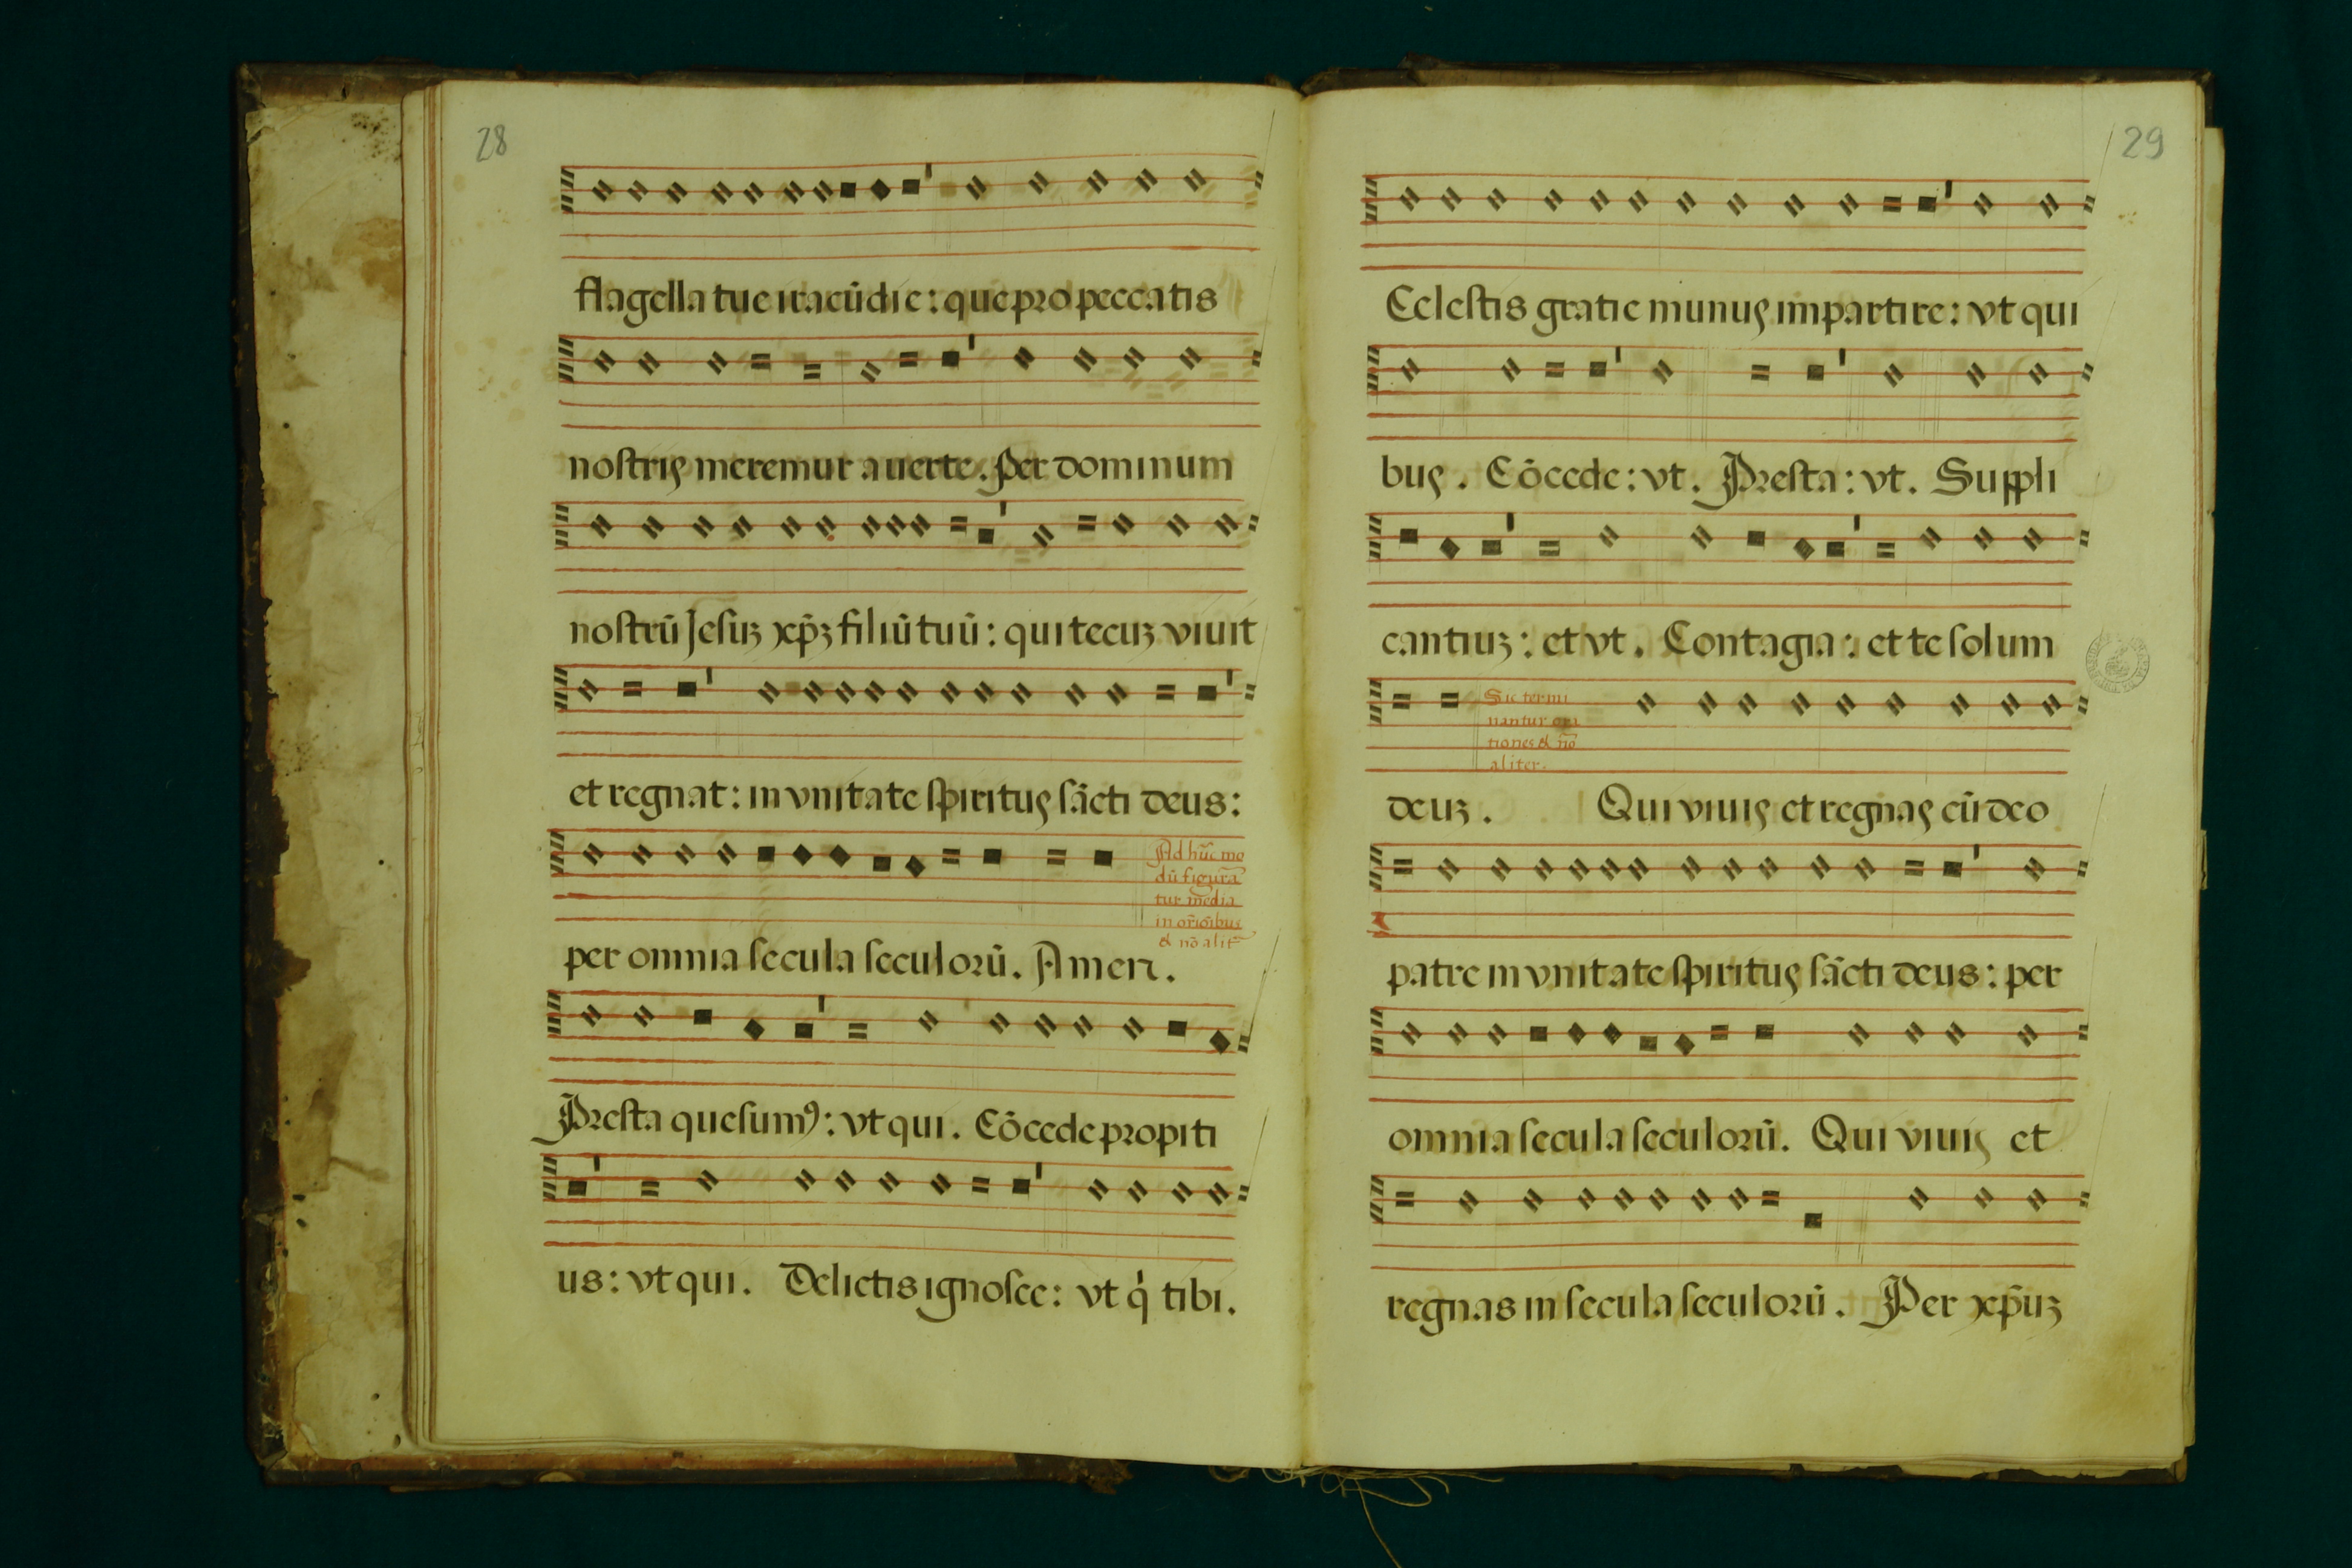 28
flagella tue iracūdie: que pro peccatis
nostris meremur auerte. Per dominum
nostrū Jesuȝ xp̄ȝ filiū tuū: qui tecuȝ viuit
et regnat: in vnitate spiritus sācti deus:
per omnia secula seculorū. Amen.
Ad hūc mo
dū figurā
tur media
in orōībus
& nō alit̄
Presta quesumꝰ: vt qui. Cōcede propiti
us: vt qui. Delictis ignosce: vt q̍ tibi.
29
Celestis gratie munus impartire: vt qui
bus. Cōcede: vt. Presta: vt. Suppli
cantiuȝ: et vt. Contagia: et te solum
deuȝ. Qui viuis et regnas cū deo
Sic termi
nantur ora
tiones & nō
aliter.
patre in vnitate spiritus sācti deus: per
omnia secula seculorū. Qui viuis et
regnas in secula seculorū. Per xp̄uȝ